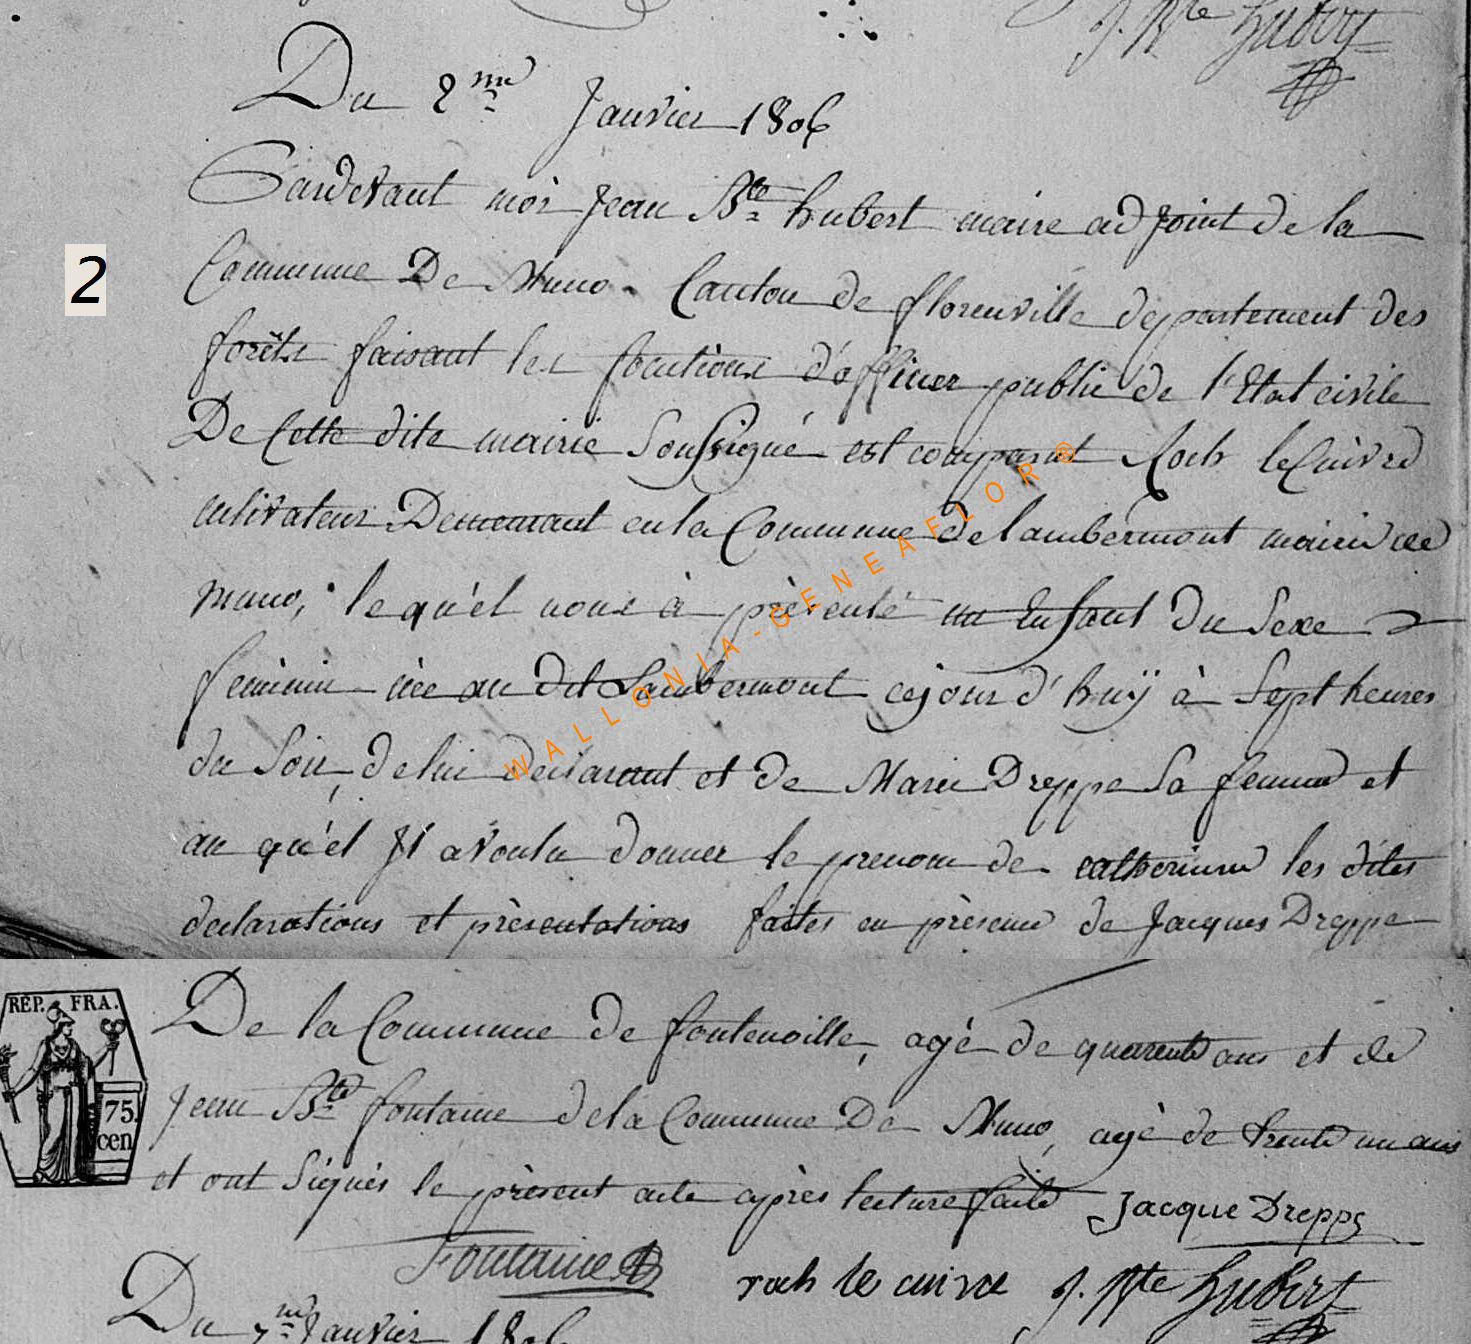 J. Bte hubert
Du 2me Janvier 1806
Pardevant moi Jean Bte hubert maire adjoint de la
2
Commune De Muno Canton de florenville departement des
forêts faisant les fonctions d'officier public de l'Etat civile
De Cette dite mairie Soussigné est comparut Roch leCuivre
cultivateur Demeurant en la Commune de lambermont mairie de
muno, lequ'el nous à présenté un Enfant du Sexe
feminin née au dit Lambermont cejourd'huÿ à Sept heures
du Soir, de lui declarant et de Marie Dreppe Sa femme et
au qu'el Jl a voulu donner le prenom de catherinne les dites
declarations et présentations faites en présence de Jacques Dreppe
De la Commune de fontenoille, agé de quarente ans et de
Jean Bte fontaine de la Commune De Muno, agé de trente un ans
et ont Signés le présent acte après lecture faite Jacque Drepps
Fontaine roch le cuivre J. Bte Hubert
Du 7me Janvier 1806
REP. FRA.
75.
cen
WALLONIA-GENEAFLOR®